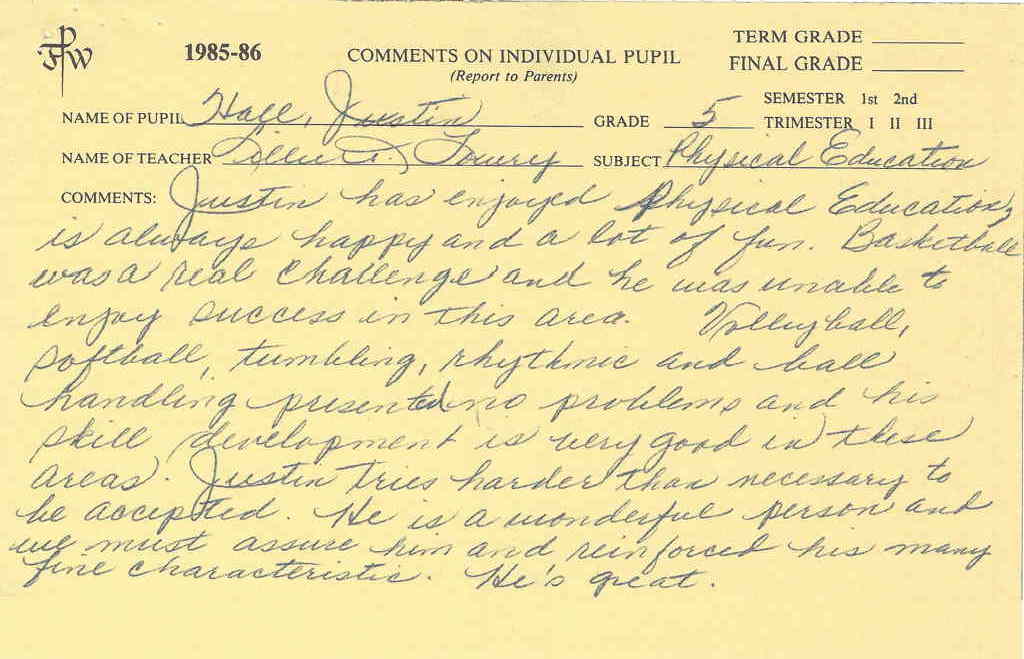 FPW
1985-86
COMMENTS ON INDIVIDUAL PUPIL
(Report to Parents)
TERM GRADE
FINAL GRADE
NAME OF PUPIL Hall, Justin GRADE 5 SEMESTER 1st 2nd
TRIMESTER I II III
NAME OF TEACHER Lowery SUBJECT Physical Education
COMMENTS: Justin has enjoyed Physical Education,
is always happy and a lot of fun. Basketball
was a real challenge and he was unable to
enjoy success in this area. Volleyball,
softball, tumbling, rhythmic and ball
handling presented no problems and his
skill development is very good in these
areas. Justin tries harder than necessary to
be accepted. He is a wonderful person and
we must assure him and reinforced his many
fine characteristic. He's great.